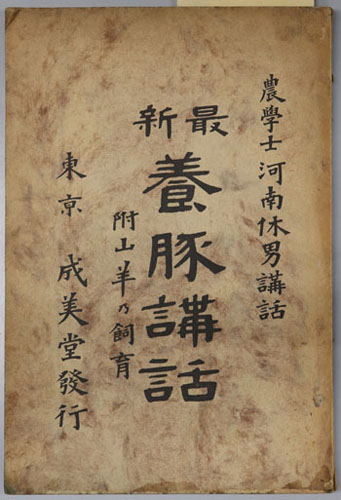 農學士河南休男講話
最新
養豚講話
附山羊乃飼育
東京 成美堂發行